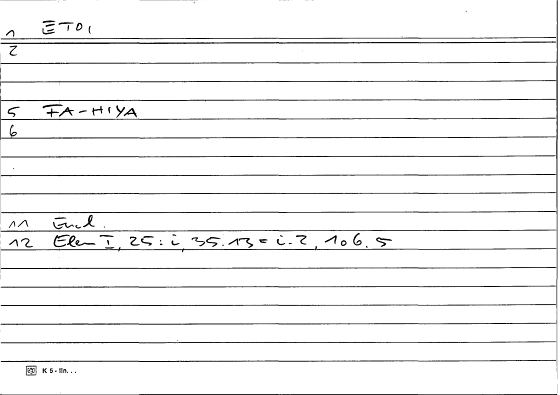 1 ETOI
2
5 FA-HIYA
6
11 Eucl.
12 Elem I, 25: i, 35.13 = i.2, 106.5
K 5 - lin. . .